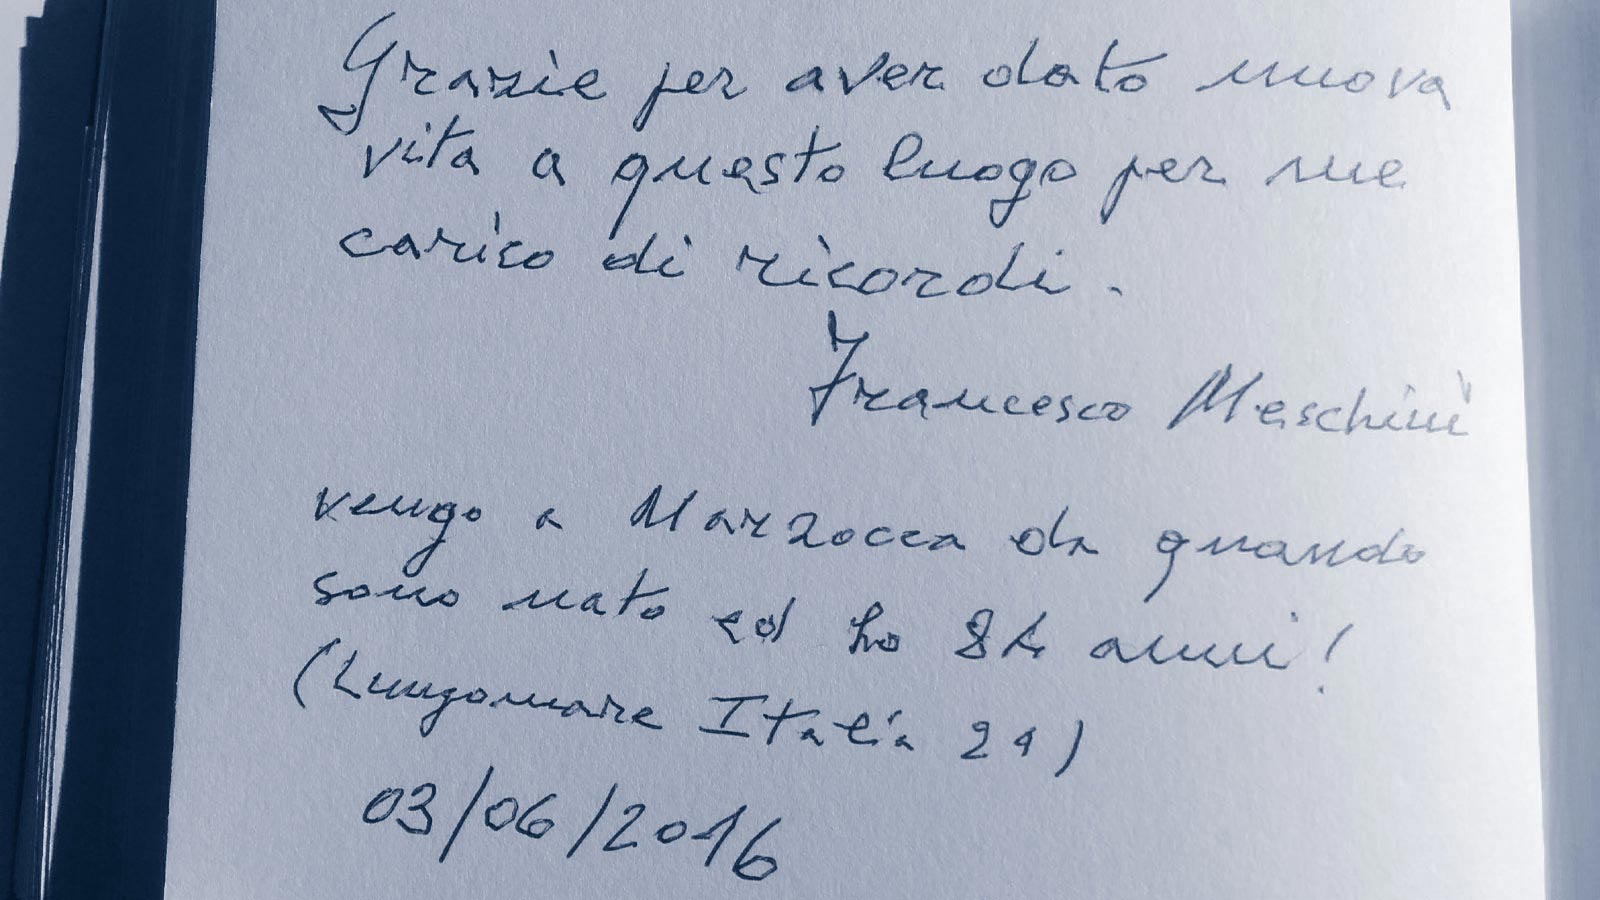 Grazie per aver dato nuova
vita a questo luogo per me
carico di ricordi.
Francesco Meschini
vengo a Marzocca da quando
sono nato ed ho 84 anni!
(Lungomare Italia 29)
03/06/2016